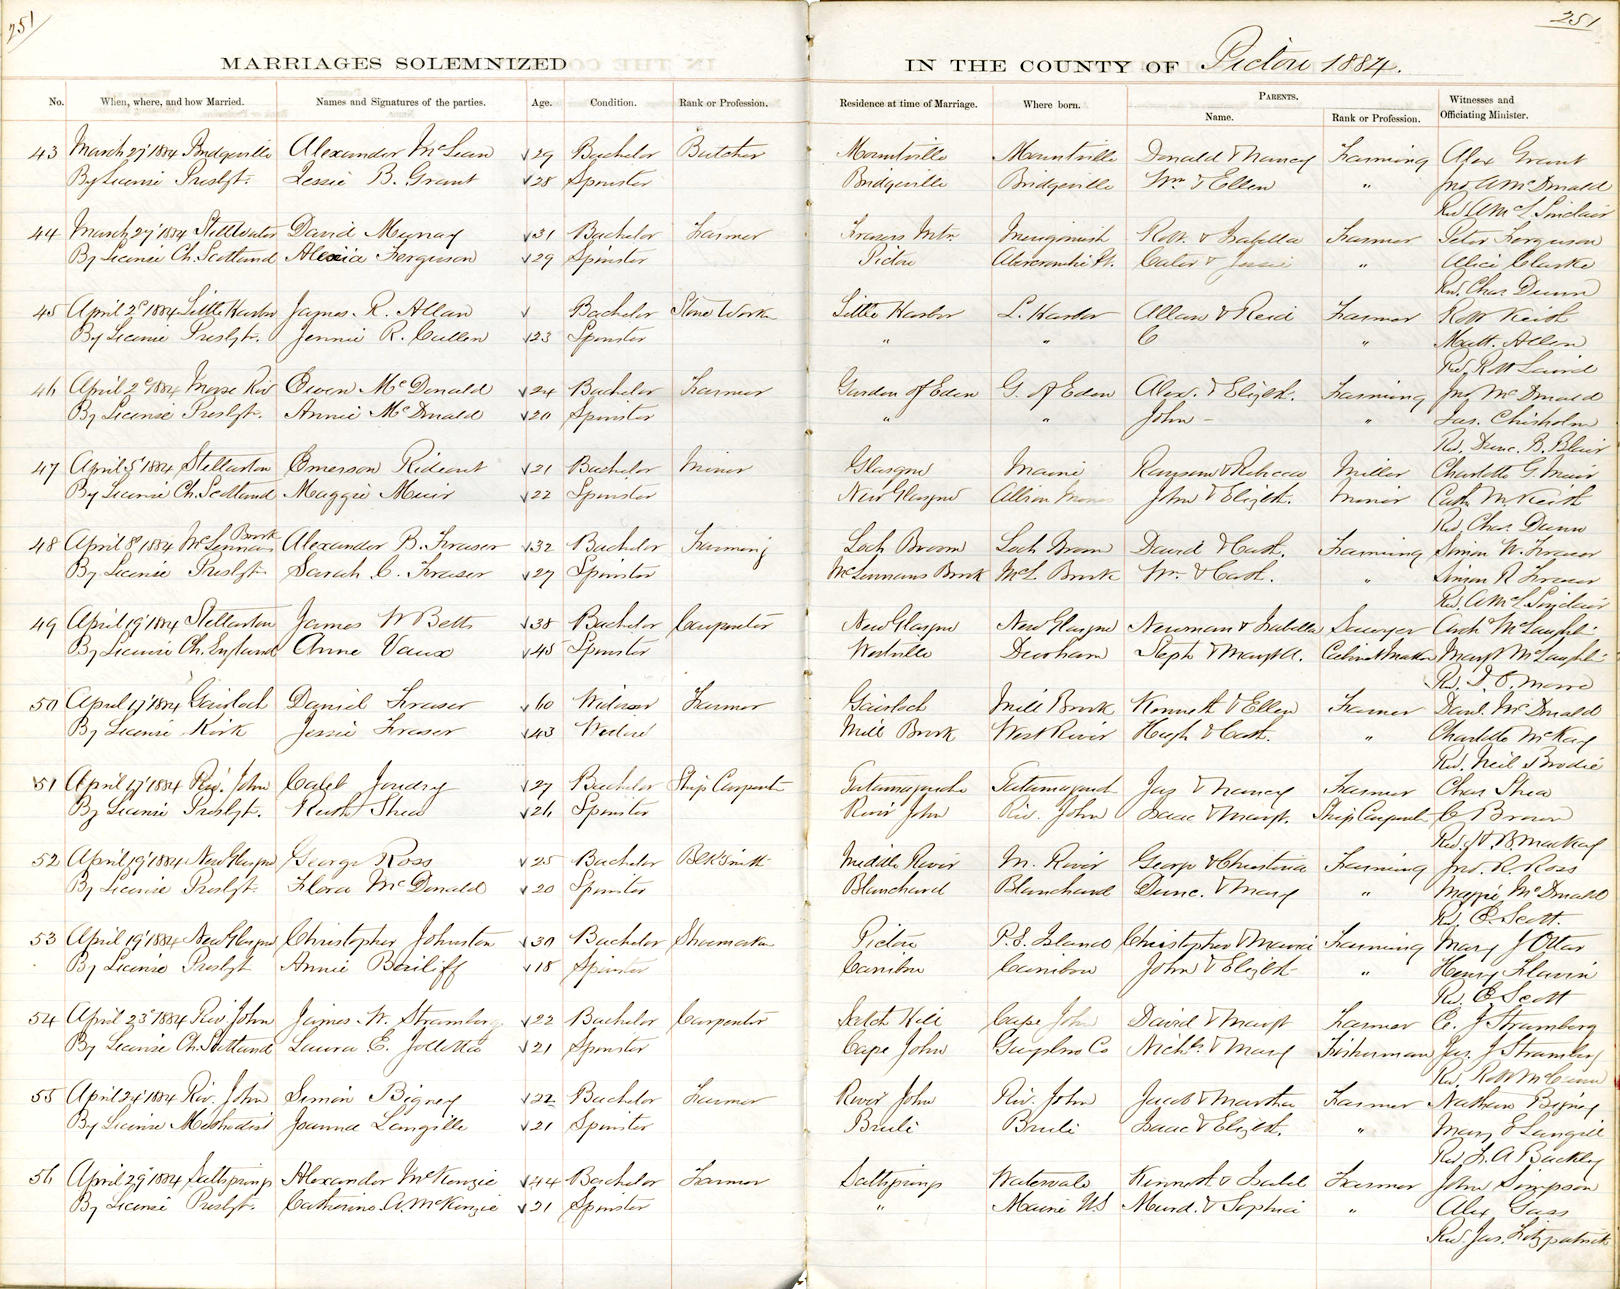 251
251
MARRIAGES SOLEMNIZED IN THE COUNTY OF Pictou 1884.
No. When, where, and how Married. Names and Signatures of the parties. Age. Condition. Rank or Profession. Residence at time of Marriage. Where born. PARENTS. Name. Rank or Profession. Witnesses and Officiating Minister.
43 March 27 1884 Bridgeville Alexander McLean 29 Bachelor Butcher Mountville Mountville Donald & Nancy Farming Alex Grant
By License Presbyt. Jessie B. Grant 28 Spinster Bridgeville Bridgeville Wm & Ellen " Jno A McDonald
Rev. A McL Sinclair
44 March 27 1884 Stillwater David Murray 31 Bachelor Farmer Frasers Mtn. Merigomish Robt. & Isabella Farmer Peter Ferguson
By License Ch. Scotland Alexia Ferguson 29 Spinster Pictou Abercrombie Pt. & Jessie " Alice Clarke
Rev. Chas. Dunn
45 April 2d 1884 Little Harbor James R. Allan Bachelor Stone Worker Little Harbor L. Harbor Allan & Reid Farmer Robt Keith
By License Presbyt. Jennie R. Cullen 23 Spinster " " C " Matt. Allen
Rev. Robt Laird
46 April 2d 1884 Moose Riv Owen McDonald 24 Bachelor Farmer Garden of Eden G. of Eden Alex. & Elizth. Farming Jno McDonald
By License Presbyt. Annie McDonald 20 Spinster " " John - " Jas. Chisholm
Rev. Dunc. B. Blair
47 April 5 1884 Stellarton Emerson Rideout 21 Bachelor Miner Glasgow Maine & Rebecca Miller Charlotte G. Muir
By License Ch. Scotland Maggie Muir 22 Spinster New Glasgow Albion Mines John & Elizth. Miner Cath. M. Keith
Rev. Chas. Dunn
48 April 8 1884 McLennans Brook Alexander B. Fraser 32 Bachelor Farming Loch Broom Loch Broom David & Cath. Farming Simon W. Fraser
By License Presbyt. Sarah C. Fraser 27 Spinster McLennans Brook McL. Brook Wm. & Cath. " Simon R Fraser
Rev. A McL Sinclair
49 April 19 1884 Stellarton James W Betts 38 Bachelor Carpenter New Glasgow New Glasgow Newman & Isabella Sawyer Arch McLaughli-
By License Ch. England Anne Vaux 45 Spinster Westville Durham Steph & Margt A. Cabinet Maker Margt McLaughli-
Rev. D. C. Moore
50 April 17 1884 Gairloch Daniel Fraser 60 Widower Farmer Gairloch Mill Brook Kenneth & Ellen Farmer Danl. McDonald
By License Kirk Jessie Fraser 43 Widow Mill Brook West River Hugh & Cath. " Charlotte McKay
Rev. Neil Brodie
51 April 17 1884 Riv. John Caleb Joudry 27 Bachelor Ship Carpent Tatamagouche Tatamagouch Jas & Nancy Farmer Chas Shea
By License Presbyt. Ruth Shea 26 Spinster River John Riv. John Isaac & Margt. Ship Carpenter C Brown
Rev. H. B. Mackay
52 April 19 1884 New Glasgow George Ross 25 Bachelor Blk'smith Middle River M. River George & Christina Farming Jno. R. Ross
By License Presbyt. Flora McDonald 20 Spinster Blanchard Blanchard Dunc. & Mary " Maggie McDonald
Rev. E. Scott
53 April 19 1884 New Glasgow Christopher Johnston 30 Bachelor Shoemaker Pictou P. E. Island Christopher & Maria Farming Mary J Ottar
By License Presbyt Annie Bailiff 18 Spinster Caribou Caribou John & Elizth " Henry
Rev. E. Scott
54 April 23d 1884 Riv. John James W. Stramberg 22 Bachelor Carpenter Salt Hill Cape John David & Margt Farmer C. J Stramberg
By License Ch. Scotland Laura E. Jollotta 21 Spinster Cape John Guysbro Co Nichls. & Mary Fisherman Jas. J Stramberg
Rev. Robt McCunn
55 April 24 1884 Riv. John Simon Bigney 22 Bachelor Farmer River John Riv. John Jacob & Martha Farmer Nathan Bigney
By License Methodist Joanna Langille 21 Spinster Brule Brule Isaac & Elizth. " Mary E Langill
Rev. L. A Buckley
56 April 29 1884 Saltsprings Alexander McKenzie 44 Bachelor Farmer Saltsprings Watervale Kenneth & Isabel Farmer John Simpson
By License Presbyt. Catherine A. McKenzie 21 Spinster " Maine US Murd. & Sophia " Alex Gass
Rev. Jas. Fitzpatrick